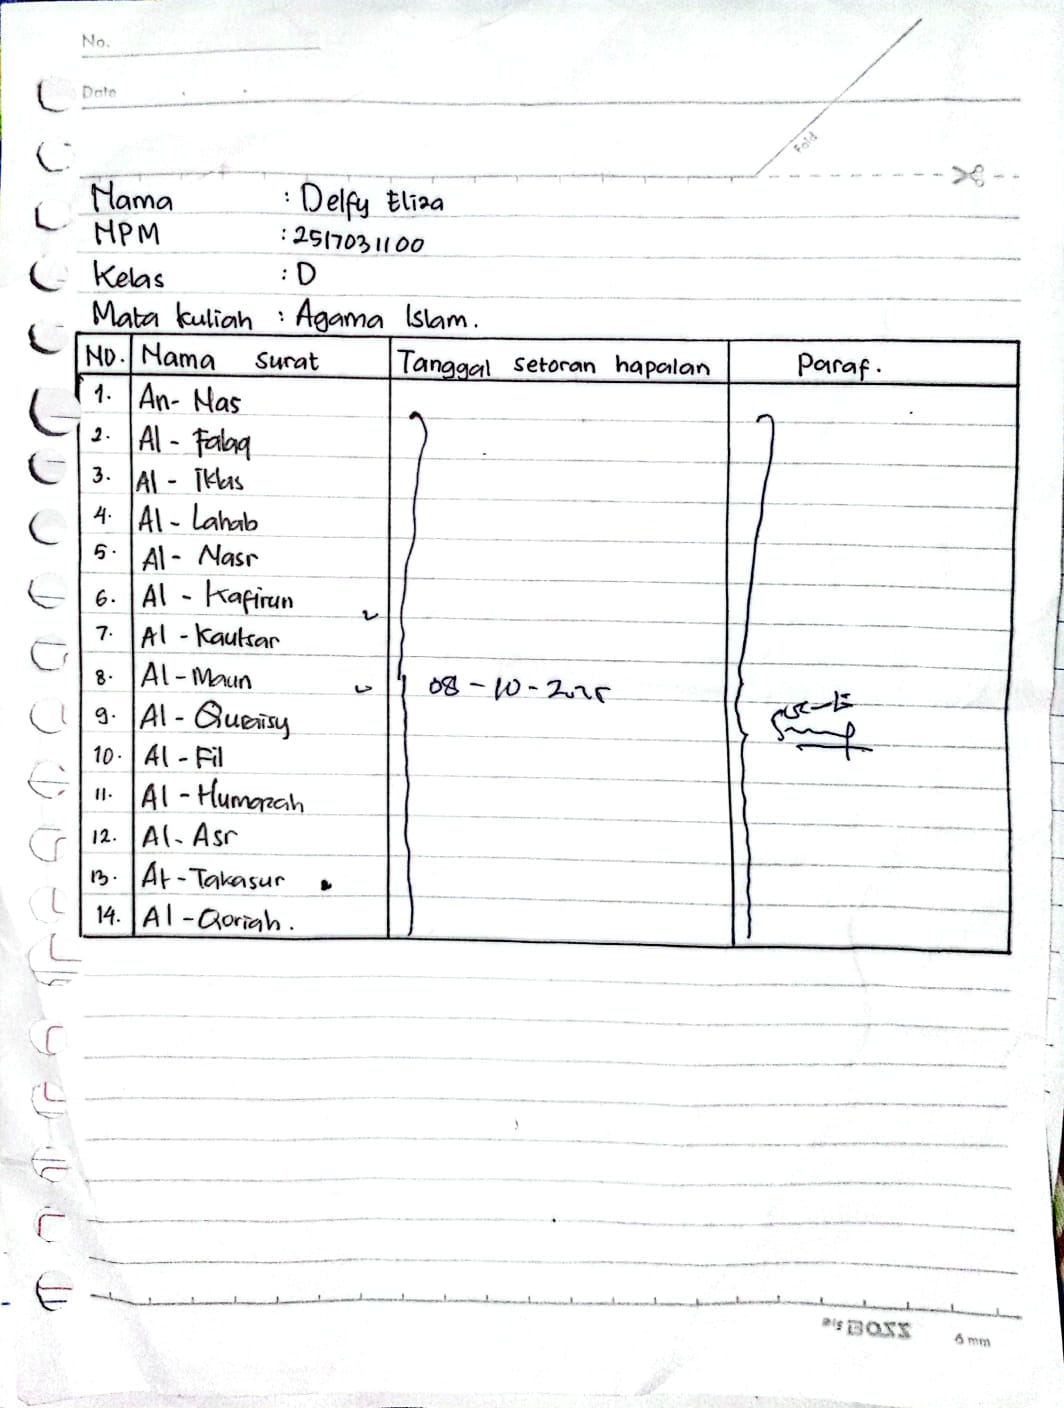 No.
Date
Fold
Nama : Delfy Eliza
NPM : 2517031100
Kelas : D
Mata kuliah : Agama Islam.
NO. Nama surat Tanggal setoran hapalan Paraf.
1. An-Nas
2. Al-Falaq
3. Al-Iklas
4. Al-Lahab
5. Al-Nasr
6. Al-Kafirun
7. Al-Kautsar
8. Al-Maun 08-10-2025
9. Al-Quraisy
10. Al-Fil
11. Al-Humazah
12. Al-Asr
13. At-Takasur
14. Al-Qoriah.
BIG BOSS 6 mm